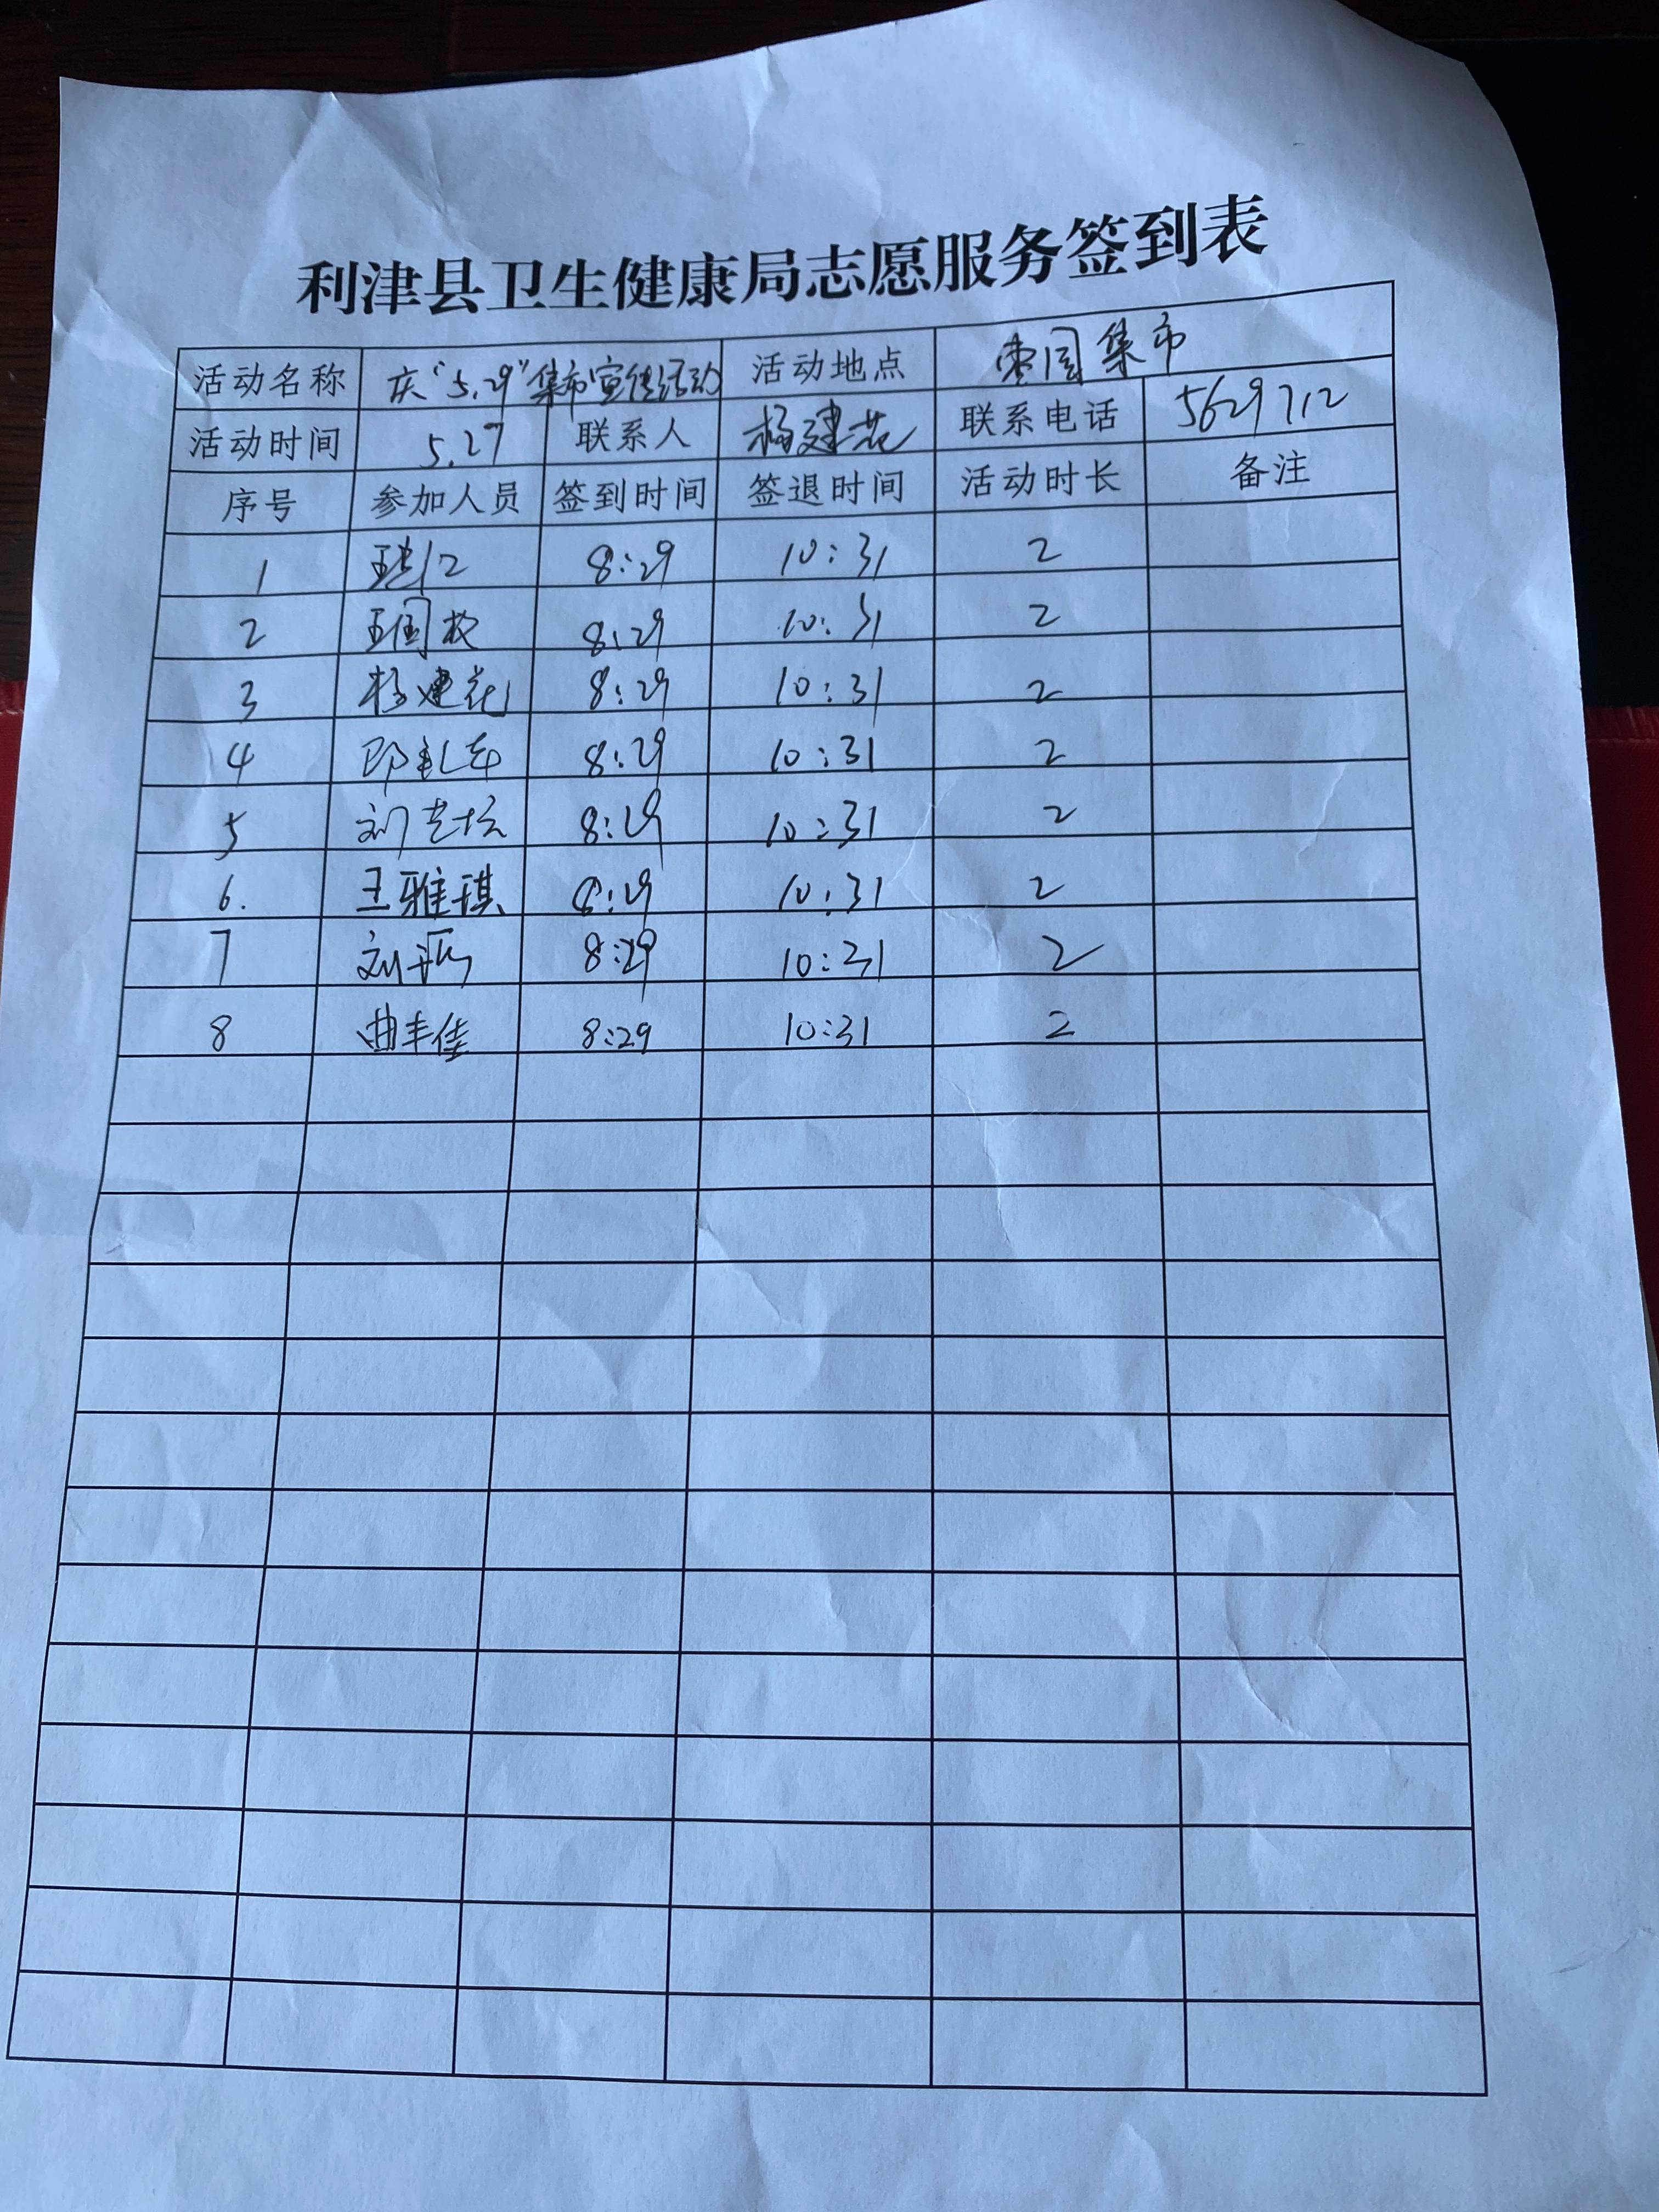 利津县卫生健康局志愿服务签到表
活动名称 庆“5.29”集市宣传活动 活动地点 枣园集市
活动时间 5.27 联系人 杨建花 联系电话 5629712
序号 参加人员 签到时间 签退时间 活动时长 备注
1 8:29 10:31 2
2 8:29 10:31 2
3 杨建花 8:29 10:31 2
4 8:29 10:31 2
5 刘艺坛 8:29 10:31 2
6. 王雅琪 8:29 10:31 2
7 8:29 10:31 2
8 曲丰佳 8:29 10:31 2